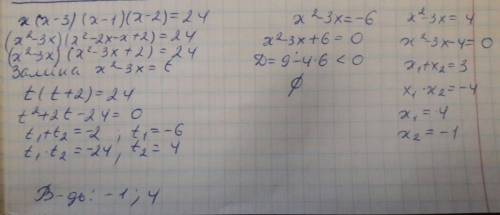 x(x-3)(x-1)(x-2)=24
(x²-3x)(x²-2x-x+2)=24
(x²-3x)(x²-3x+2)=24
Заміна x²-3x=t
t(t+2)=24
t²+2t-24=0
t₁+t₂=-2, t₁=-6
t₁·t₂=-24, t₂=4
В-дь: -1; 4
x²-3x=-6
x²-3x+6=0
D=9-4·6<0
∅
x²-3x=4
x²-3x-4=0
x₁+x₂=3
x₁·x₂=-4
x₁=4
x₂=-1